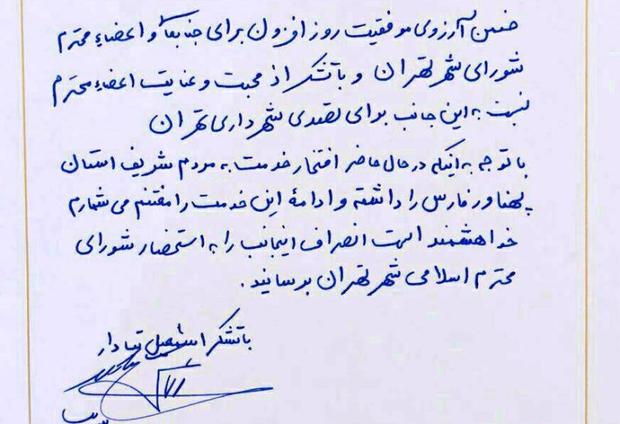 ضمن آرزوی موفقیت روزافزون برای جنابعالی و اعضاء محترم
شورای شهر تهران و با تشکر از محبت و عنایت اعضاء محترم
نسبت به این جانب برای تصدی شهرداری تهران
با توجه به اینکه در حال حاضر افتخار خدمت به مردم شریف استان
پهناور فارس را داشته و ادامهٔ این خدمت را مغتنم می شمارم
خواهشمند است انصراف اینجانب را به استحضار شورای
محترم اسلامی شهر تهران برسانید.
با تشکر اسمعیل تبادار